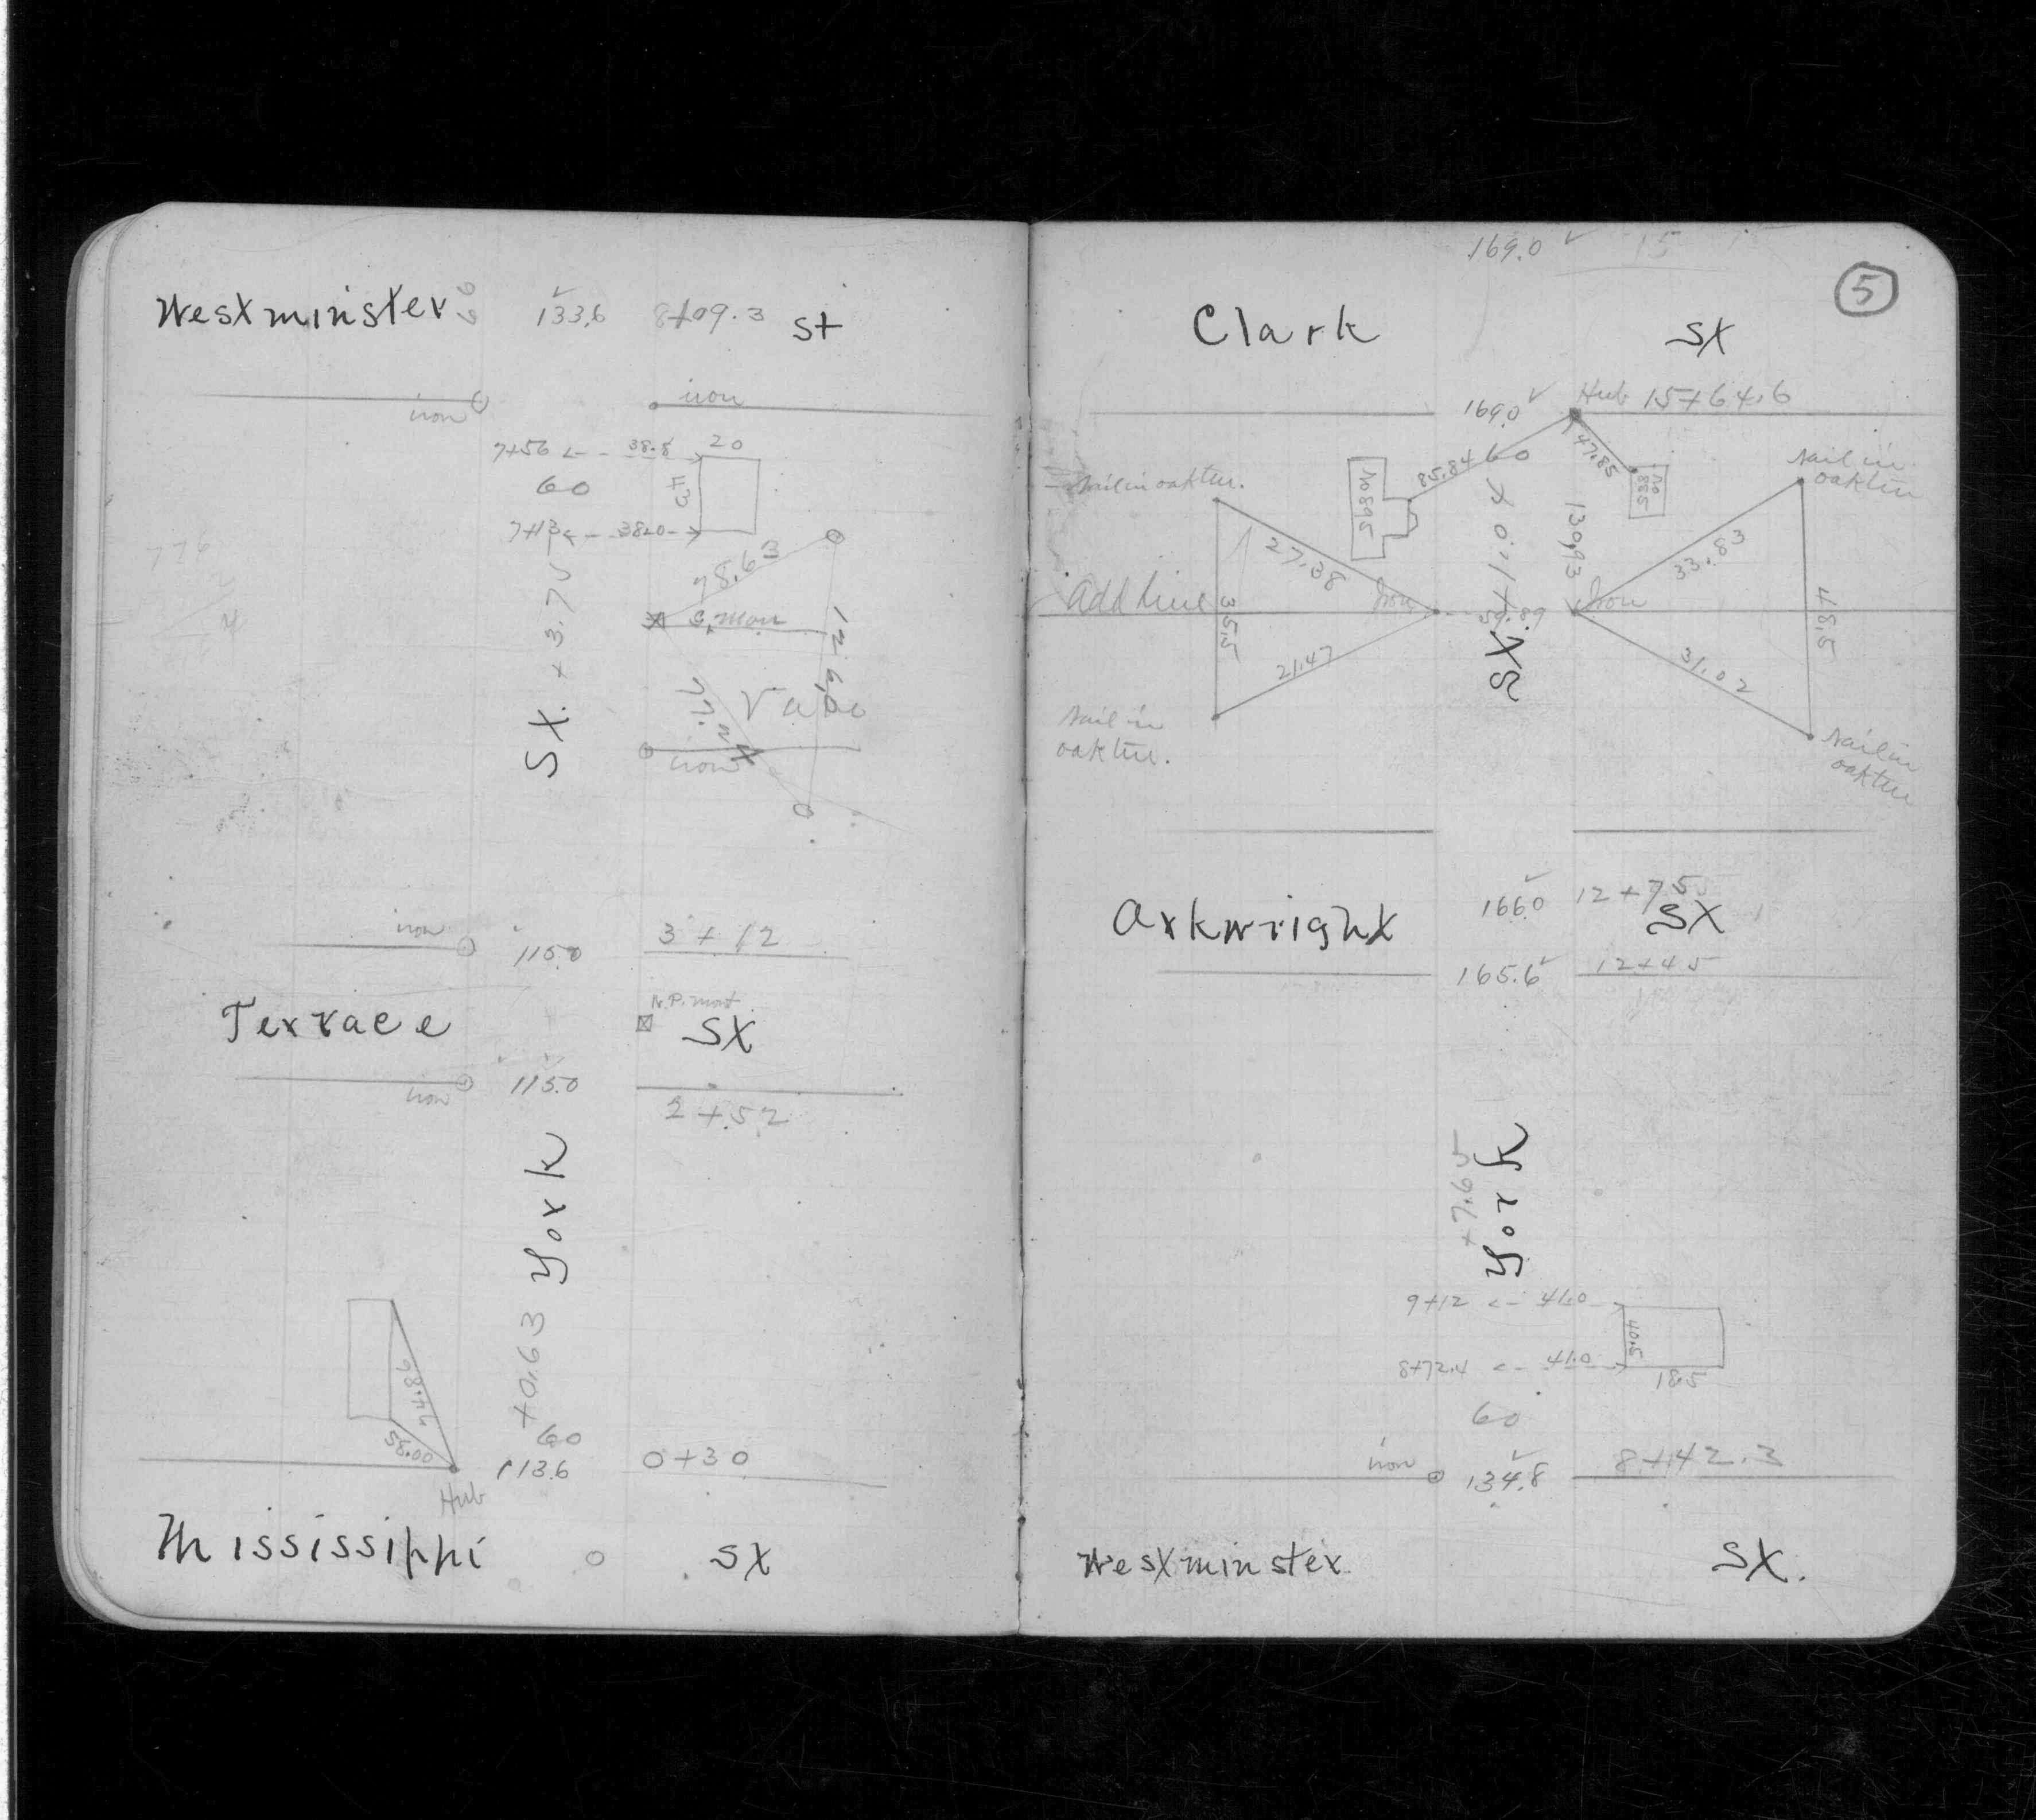 Westminster 66 133.6 8+09.3 St
iron iron
7+56 38.8 20
60 43
7+13 38.0
78.63
S. mon
129.21
St. +3.70
Vale
iron
iron 115.0 3+12
Terrace St
iron 115.0
2+52
York
+0.63
74.86
58.00
60
113.6 0+30
Hub
Mississippi St
169.0 15
5
Clark St
169.0 Hub 15+64.6
60
85.84 47.85
No 895 No 885
Nail in oak tree.
Nail in
oak tree
27.38 130.93 33.83
+ 11.0
Add line 35.5 Iron 59.89 Iron 48.5
St.
21.47 31.02
Nail in
oak tree.
Nail in
oak tree
166.0 12+75
Arkwright St
165.6 12+45
York
+7.65
9+12 41.0
40.5
8+72.4 41.0
18.5
60
iron 134.8 8+42.3
Westminster St.